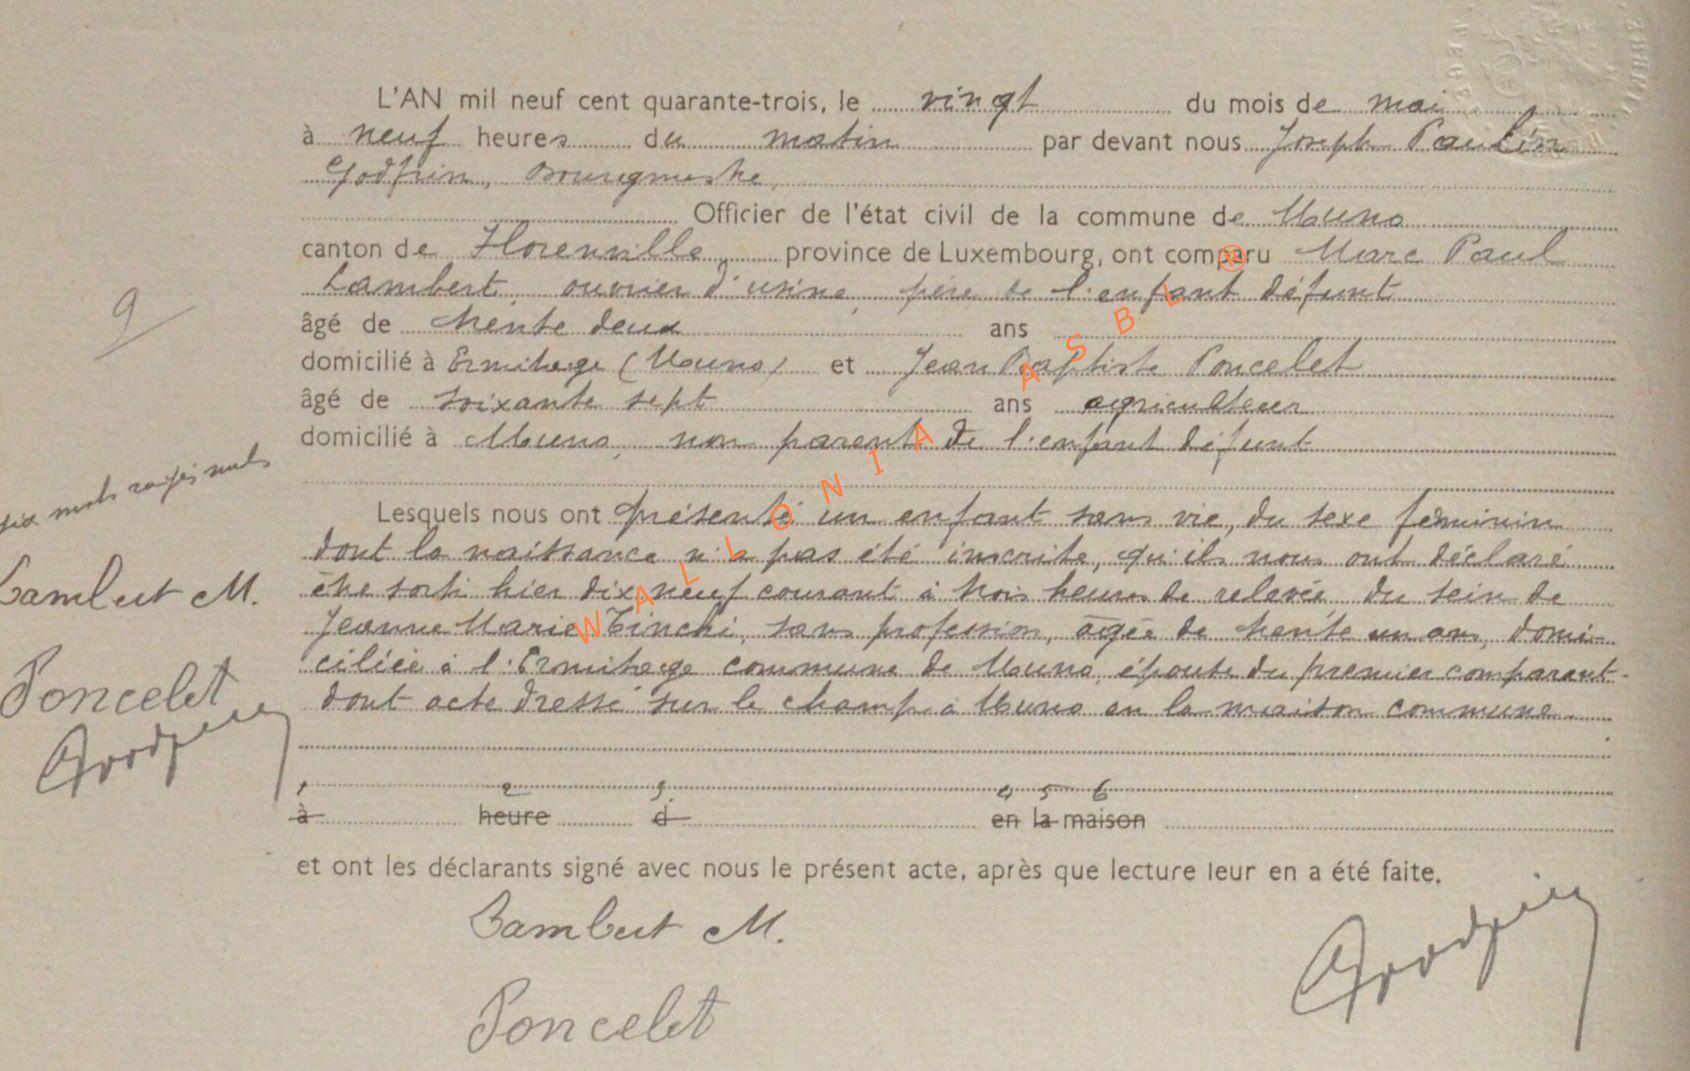 L'AN mil neuf cent quarante-trois, le vingt du mois de mai
à neuf heures du matin par devant nous Joseph Paulin
Godfrin, Bourgmestre,
Officier de l'état civil de la commune de Muno
canton de Florenville province de Luxembourg, ont comparu Marc Paul
Lambert, ouvrier d'usine, père de l'enfant défunt
âgé de trente deux ans
domicilié à Ermitage (Muno) et Jean Baptiste Poncelet
âgé de soixante sept ans agriculteur
domicilié à Muno, non parent de l'enfant défunt
Lesquels nous ont présenté un enfant sans vie, du sexe féminin
dont la naissance n'a pas été inscrite, qu'ils nous ont déclaré
être sorti hier dix neuf courant à trois heures de relevée, du sein de
Jeanne Marie Tinchi, sans profession, âgée de trente un ans, domi-
ciliée à l'Ermitage commune de Muno, épouse du premier comparant-
dont acte dressé sur le champ à Muno en la maison commune
1 2 3 4 5 6
à heure d en la maison
et ont les déclarants signé avec nous le présent acte, après que lecture leur en a été faite.
Lambert M.
Godfrin
Poncelet
9
six mots rayés nuls
Lambert M.
Poncelet
Godfrin
WALLONIA ASBL ®